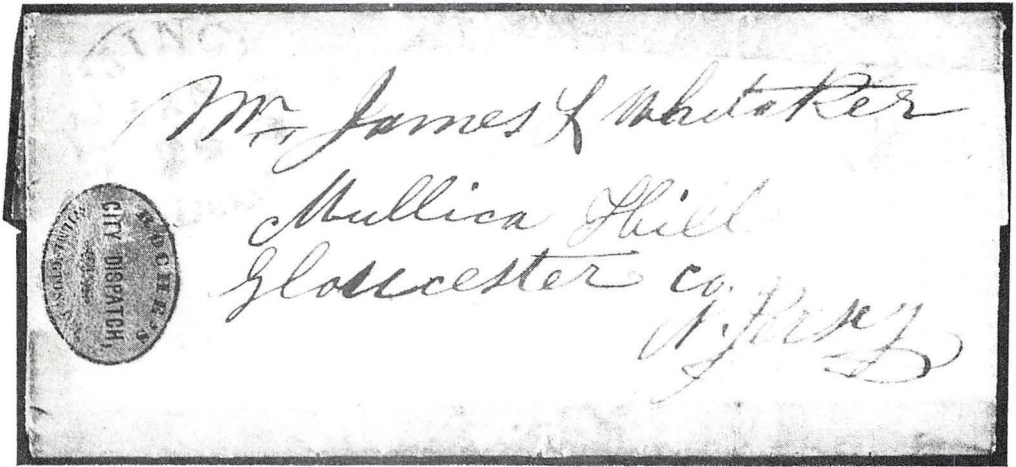 Mr. James L Whitaker
Mullica Hill
Gloucester co.
N. Jersey
ROCHE'S
CITY DISPATCH,